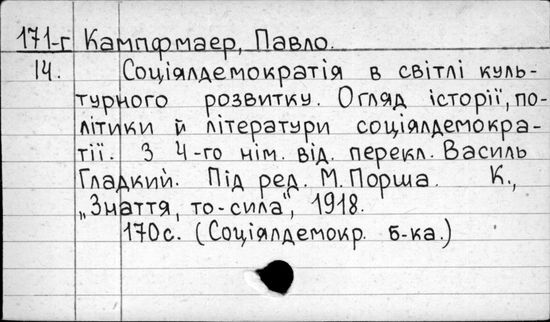 171-г Кампфмаер, Павло.
14. Соціялдемократія в світлі куль-
турного розвитку. Огляд історії, по-
літики й літератури соціялдемокра-
тії. З 4-го нім. від. перекл. Василь
Гладкий. Під ред. М. Порша. К.,
„Знаття, то-сила", 1918.
170с. (Соціялдемокр. б-ка.)